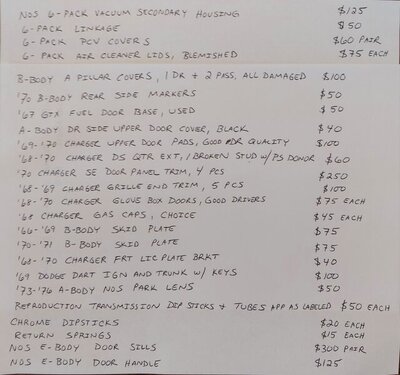 NOS 6-PACK VACUUM SECONDARY HOUSING $125
6-PACK LINKAGE $50
6-PACK PCV COVERS $60 PAIR
6-PACK AIR CLEANER LIDS, BLEMISHED $75 EACH
B-BODY A PILLAR COVERS, 1 DR + 2 PASS, ALL DAMAGED $100
'70 B-BODY REAR SIDE MARKERS $50
'67 GTX FUEL DOOR BASE, USED $50
A-BODY DR SIDE UPPER DOOR COVER, BLACK $40
'69-'70 CHARGER UPPER DOOR PADS, GOOD DR QUALITY $100
'68-'70 CHARGER DS QTR EXT, 1 BROKEN STUD W/PS DONOR $60
'70 CHARGER SE DOOR PANEL TRIM, 4 PCS $250
'68-'69 CHARGER GRILLE END TRIM, 5 PCS $100
'68-'70 CHARGER GLOVE BOX DOORS, GOOD DRIVERS $75 EACH
'68 CHARGER GAS CAPS, CHOICE $45 EACH
'66-'69 B-BODY SKID PLATE $75
'70-'71 B-BODY SKID PLATE $75
'68-'70 CHARGER FRT LIC PLATE BRKT $40
'69 DODGE DART IGN AND TRUNK W/ KEYS $100
'73-'76 A-BODY NOS PARK LENS $50
REPRODUCTION TRANSMISSION DIP STICKS + TUBES APP AS LABELED $50 EACH
CHROME DIPSTICKS $20 EACH
RETURN SPRINGS $15 EACH
NOS E-BODY DOOR SILLS $300 PAIR
NOS E-BODY DOOR HANDLE $125